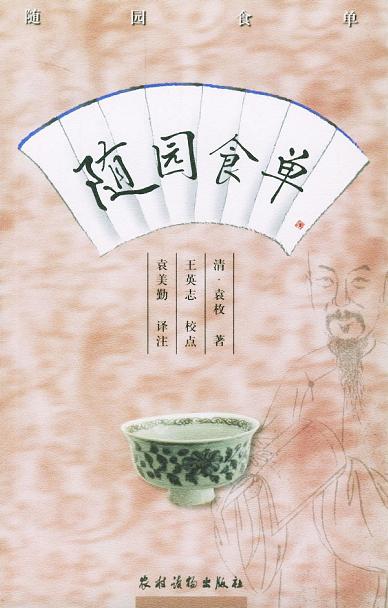 随园食单
随园食单
清·袁枚 著
王英志 校点
袁美勤 译注
农村读物出版社